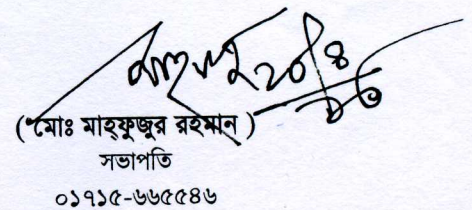 (মোঃ মাহ্‌ফুজুর রহমান)
সভাপতি
০১৭১৫-৬৬৫৫৪৬